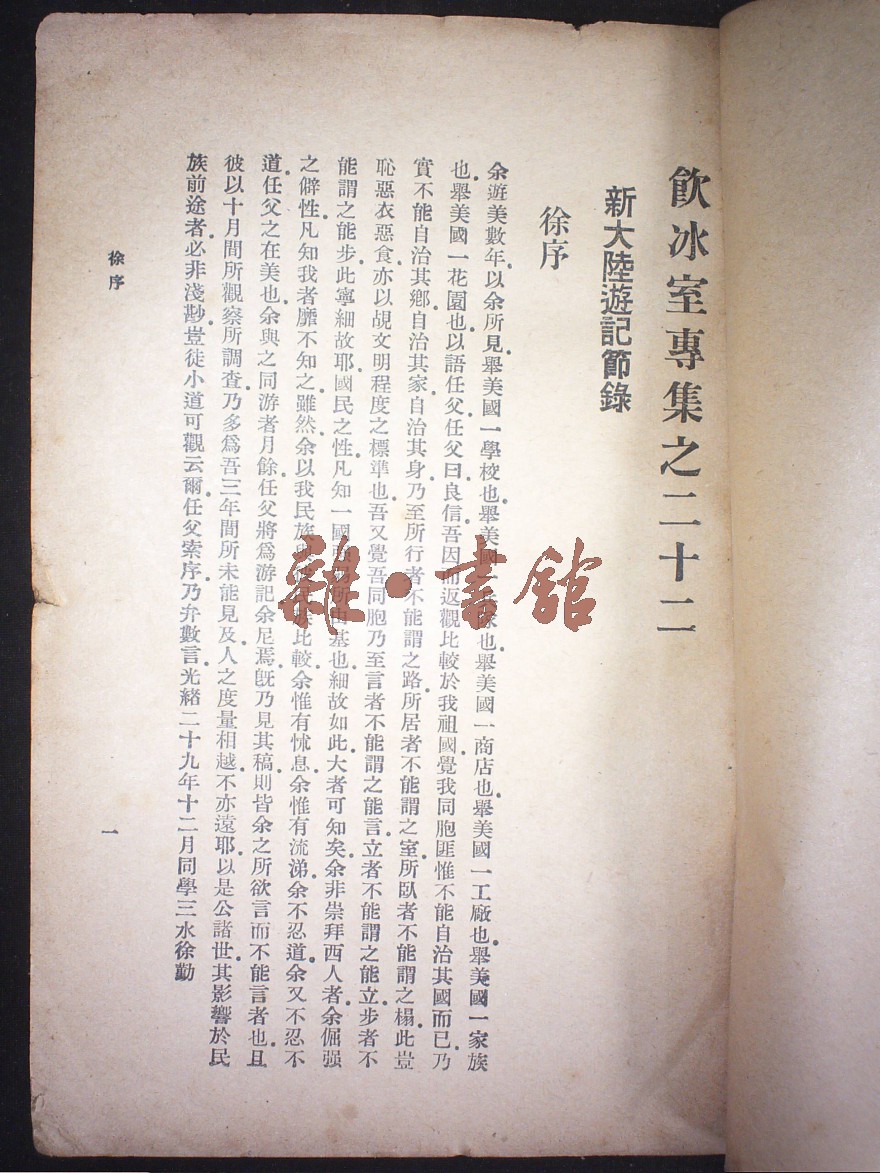 飲冰室專集之二十二
新大陸遊記節錄
徐序
余遊美數年.以余所見.舉美國一學校也.舉美國一兵隊也.舉美國一商店也.舉美國一工廠也.舉美國一家族
也.舉美國一花園也.以語任父.任父曰.良信.吾因而返觀比較於我祖國.覺我同胞匪惟不能自治其國而已.乃
實不能自治其鄉.自治其家.自治其身.乃至所行者不能謂之路.所居者不能謂之室.所臥者不能謂之榻.此豈
恥惡衣惡食.亦以覘文明程度之標準也.吾又覺吾同胞乃至言者不能謂之能言.立者不能謂之能立.步者不
能謂之能步.此寧細故耶.國民之性.凡知一國强弱所由基也.細故如此.大者可知矣.余非崇拜西人者.余倔强
之僻性.凡知我者靡不知之.雖然.余以我民族與彼民族比較.余惟有怵息.余惟有流涕.余不忍道.余又不忍不
道.任父之在美也.余與之同游者月餘.任父將爲游記.余尼焉.旣乃見其稿.則皆余之所欲言而不能言者也.且
彼以十月間所觀察所調查.乃多爲吾三年間所未能見及.人之度量相越.不亦遠耶.以是公諸世.其影響於民
族前途者.必非淺尠.豈徒小道可觀云爾.任父索序.乃弁數言.光緒二十九年十二月同學三水徐勤
徐序
一
雜·書館